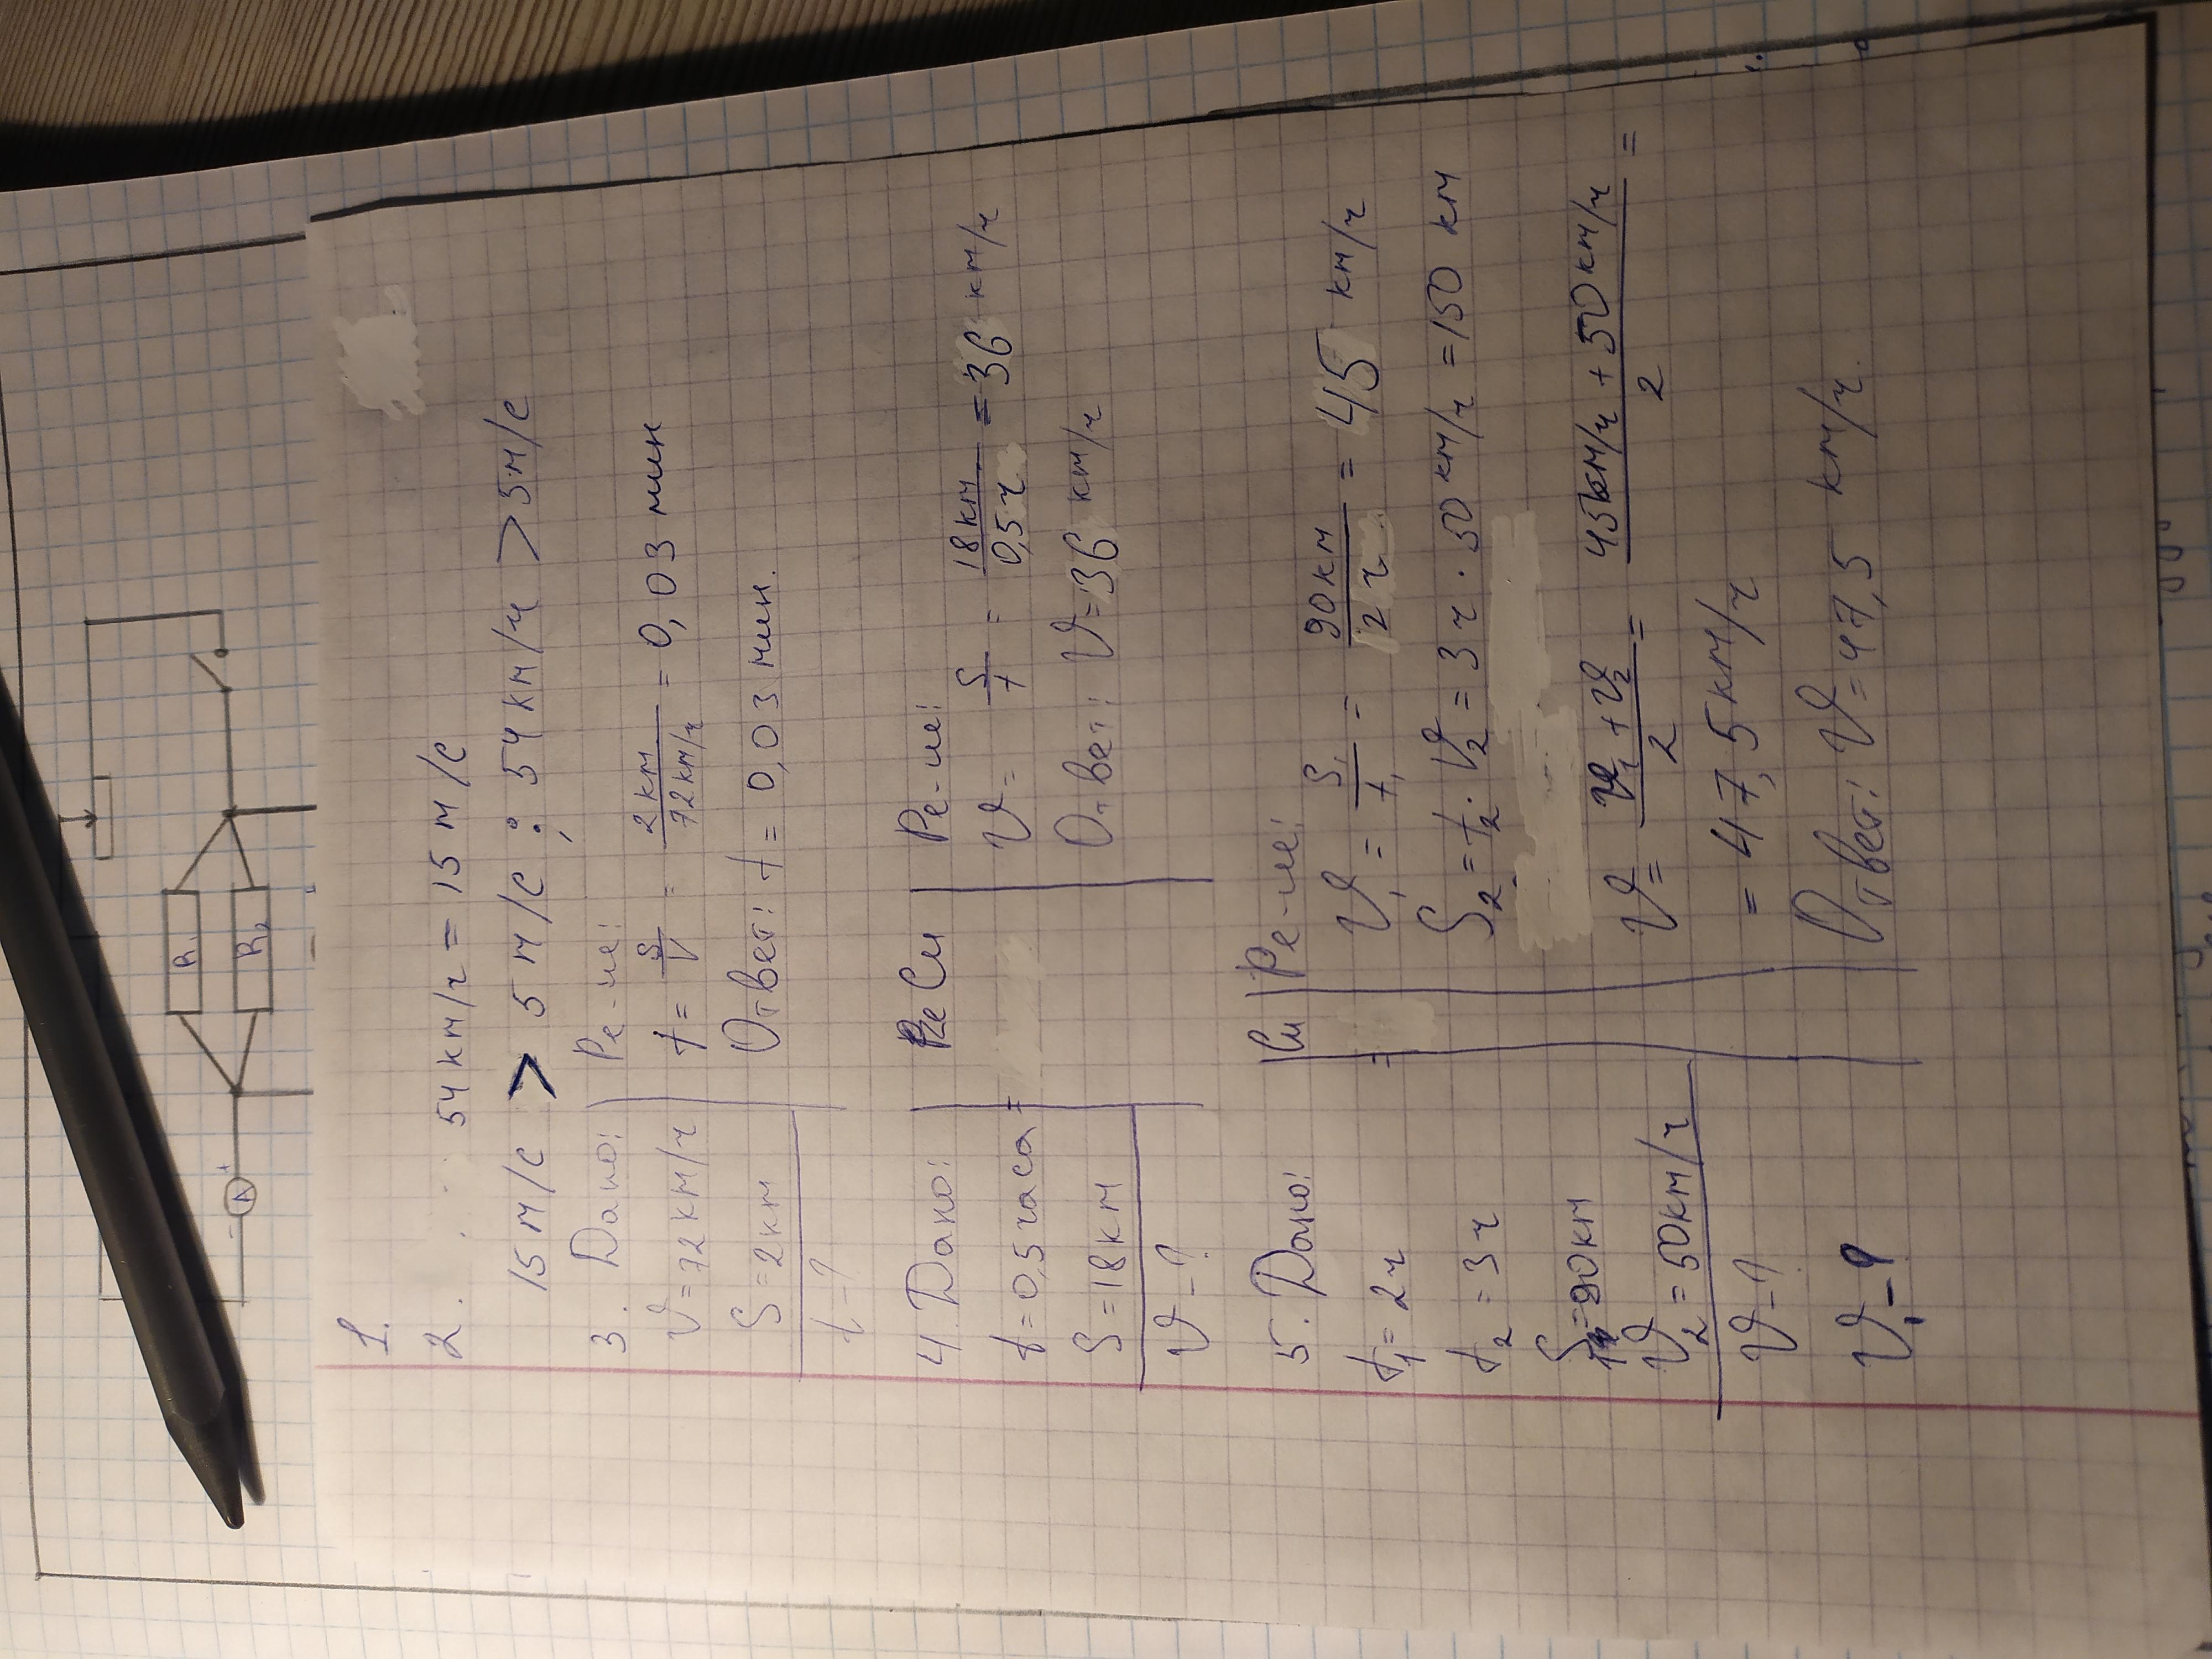 R₁
R₂
A +
1.
2. 54 км/ч = 15 м/с
15 м/с > 5 м/с ; 54 км/ч > 5 м/с
3. Дано:
υ = 72 км/ч
S = 2 км
t - ?
Ре-ие:
t = S/V = 2 км/72 км/ч = 0,03 мин
Ответ: t = 0,03 мин.
4. Дано:
t = 0,5 часа =
S = 18 км
υ - ?
Си
Ре-ие:
υ = S/t = 18 км/0,5 ч = 36 км/ч
Ответ: υ = 36 км/ч
5. Дано:
t₁ = 2 ч =
t₂ = 3 ч
S₁ = 90 км
υ₂ = 50 км/ч
υ - ?
υ₁ - ?
Си
Ре-ие:
υ₁ = S₁/t₁ = 90 км/2 ч = 45 км/ч
S₂ = t₂ · υ₂ = 3 ч · 50 км/ч = 150 км
υ = υ₁ + υ₂/2 = 45 км/ч + 50 км/ч/2 =
= 47,5 км/ч
Ответ: υ = 47,5 км/ч.